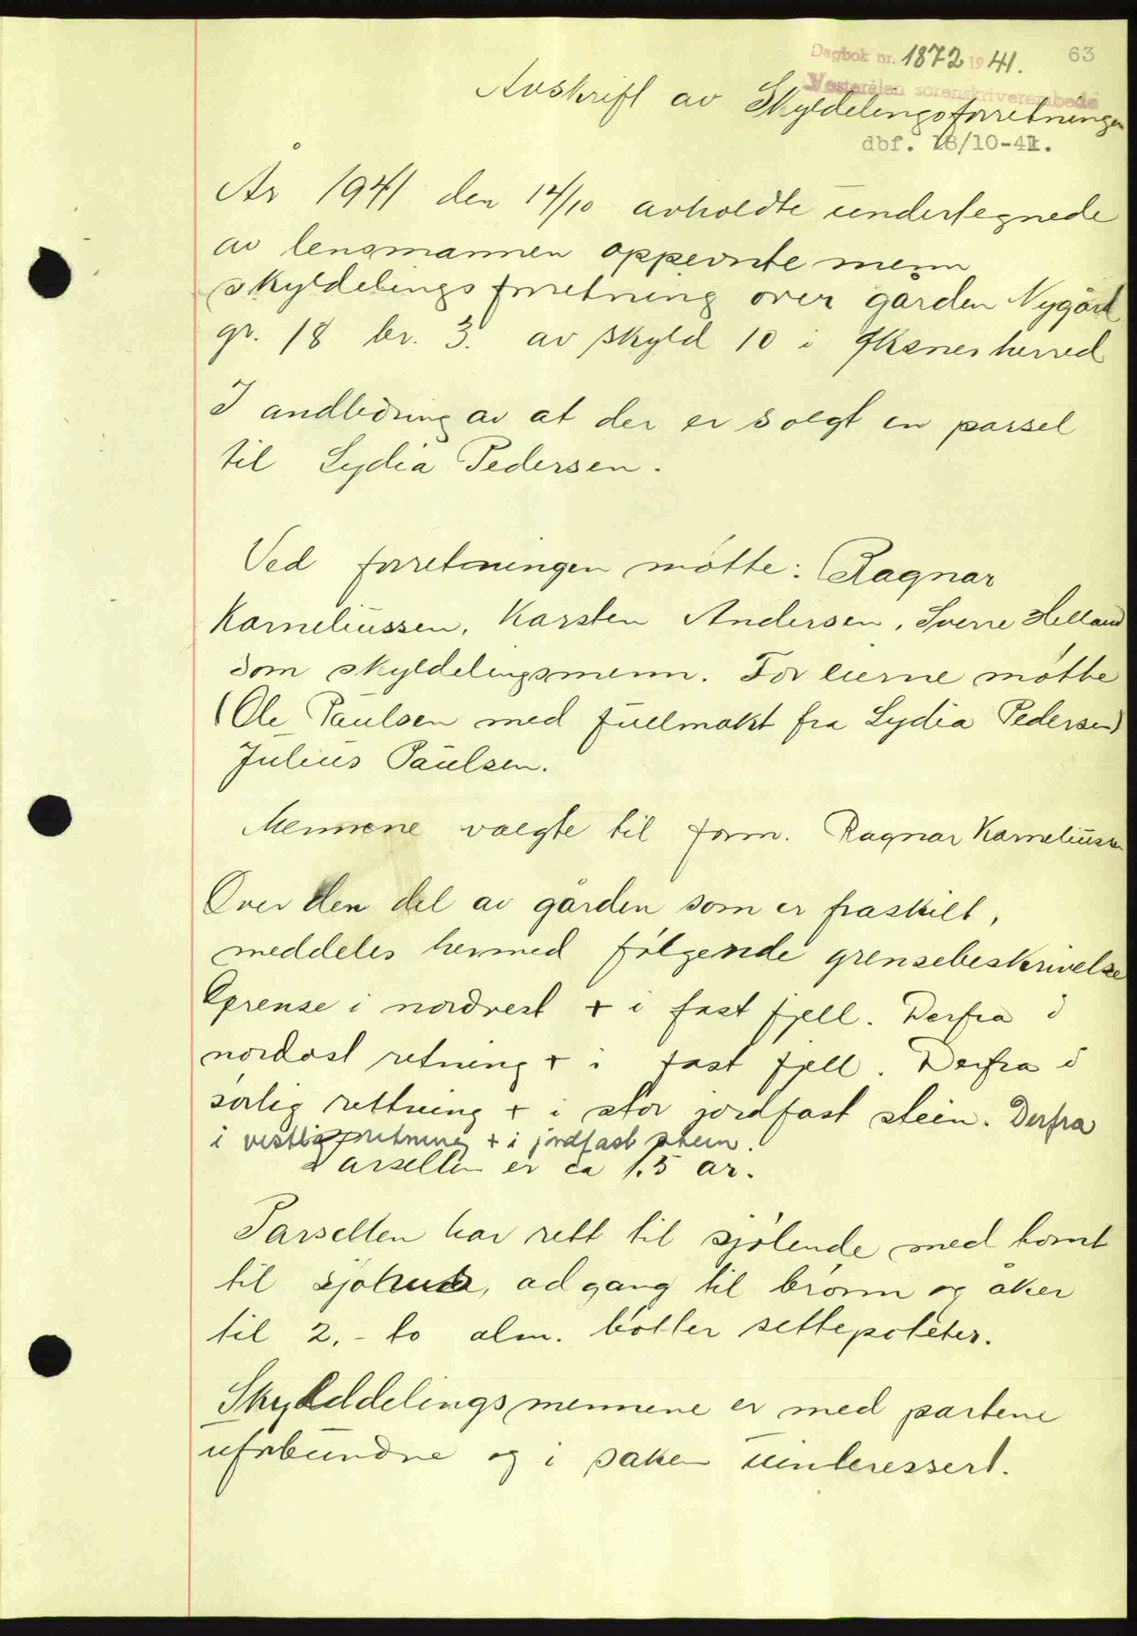 Dagbok nr. 1872 1941. 63
Vesterålen sorenskriverembede
Avskrift av Skyldelingsforretningen
dbf. 18/10-41.
År 1941 den 14/10 avholdte undertegnede
av lensmannen oppevnte menn
skyldelings forretning over gården Nygård
gr. 18 br. 3. av skyld 10 i Øksnes herred
I andledning av at der er solgt en passel
til Lydia Pedersen.
Ved forretningen møtte: Ragnar
Korneliussen, Karsten Andersen, Sverre Helland
som skyldelingsmenn. For eierne møtte
(Ole Paulsen med fullmakt fra Lydia Pedersen)
Julius Paulsen.
Mennene valgte til form. Ragnar Korneliussen
Over den del av gården som er fraskilt,
meddeles hermed følgende grensebeskrivelse
Grense i nordvest + i fast fjell. Derfra i
nordøst retning + i fast fjell. Derfra i
sørlig rettning + i stor jordfast stein. Derfra
i vestlig retning + i jordfast stein.
Parsellen er ca 1.5 ar.
Parsellen har rett til sjølende med tomt
til sjøhus, adgang til brønn og åker
til 2.- to alm. bøtter settepoteter.
Skylddelingsmennene er med partene
uforbundne og i saken uinteressert.